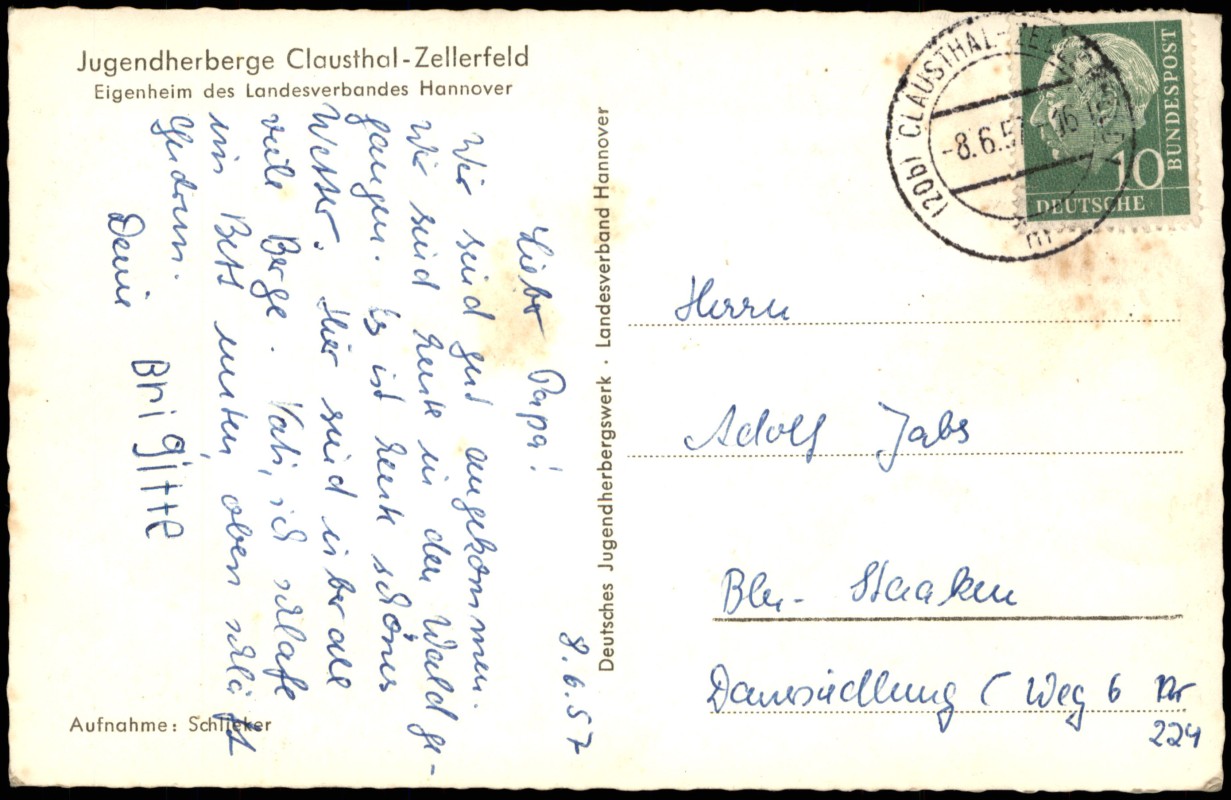 Jugendherberge Clausthal-Zellerfeld
Eigenheim des Landesverbandes Hannover
8.6.57
Lieber Papa!
Wir sind gut angekommen.
Wir sind heute in den Wald ge-
gangen. Es ist heute schönes
Wetter. Hier sind überall
viele Berge. Vati, ich schlafe
im Bett unten, oben schläft
Gudrun.
Deine Brigitte
Aufnahme: Schlieker
Deutsches Jugendherbergswerk · Landesverband Hannover
(20b) CLAUSTHAL-ZELLERFELD
-8.6.57-16
m
DEUTSCHE
BUNDESPOST
10
Herrn
Adolf Jabs
Bln- Staaken
Dauersiedlung ( Weg 6 Nr
224